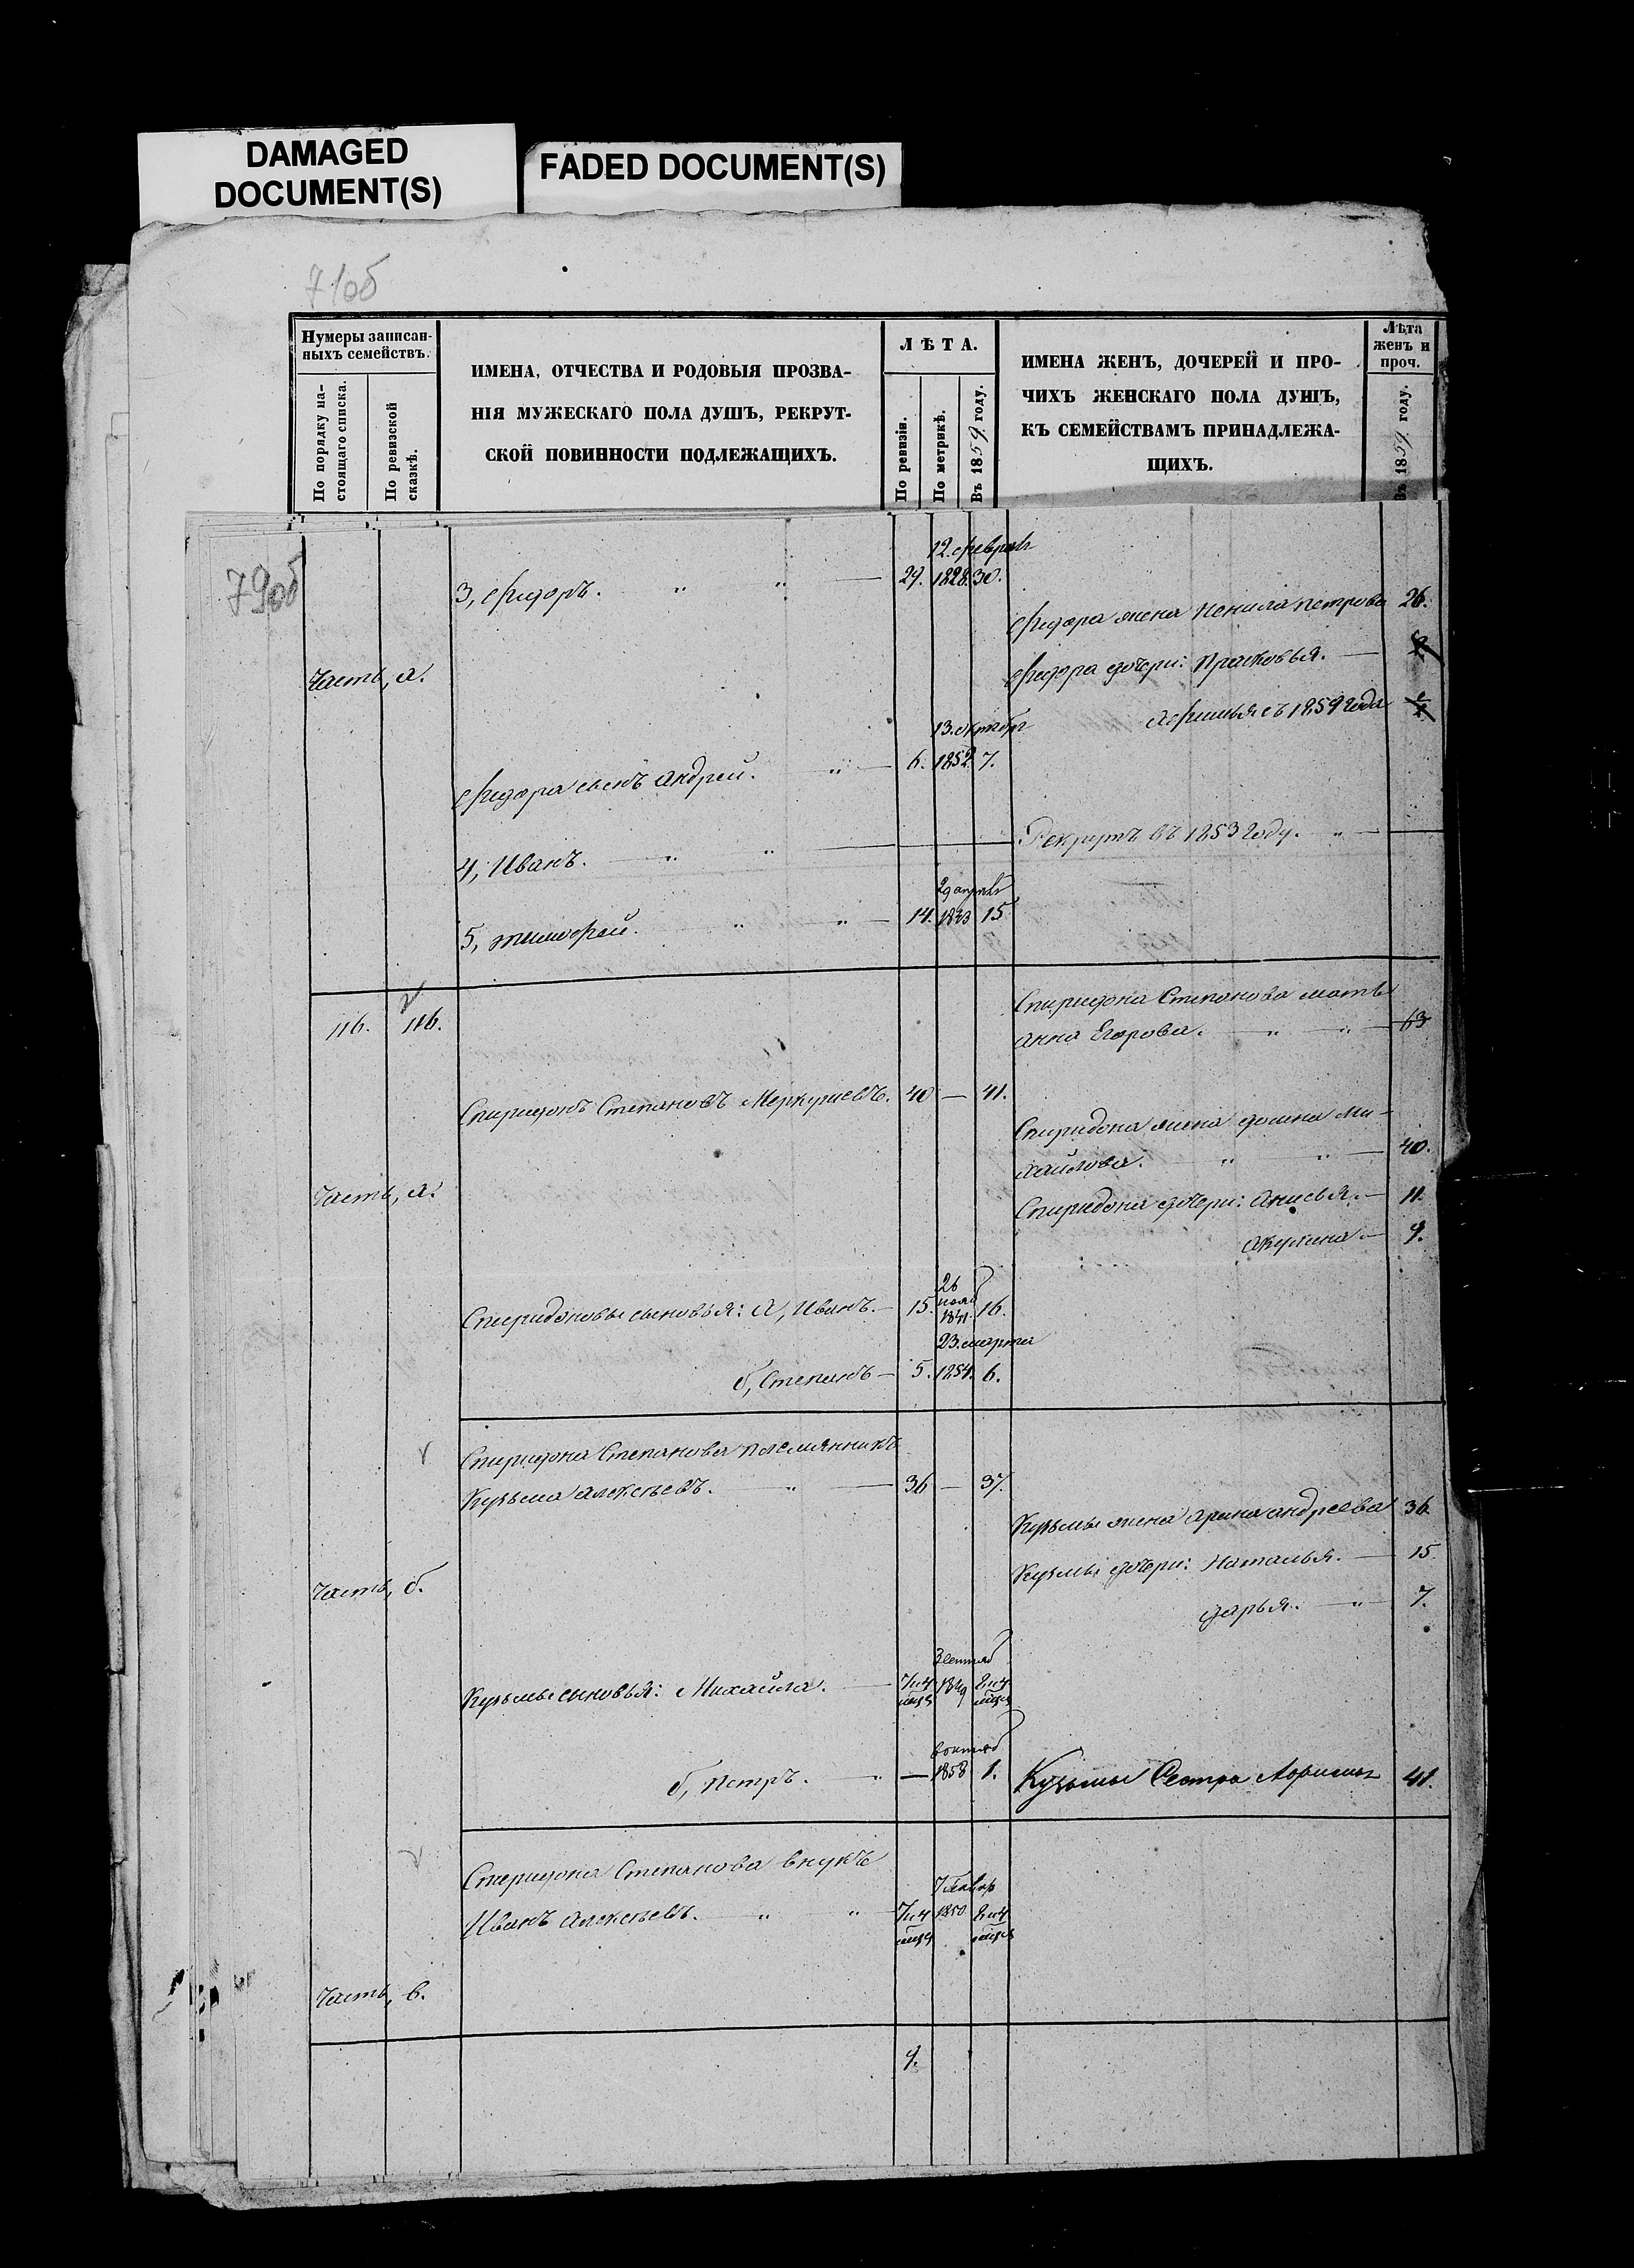 DAMAGED
DOCUMENT(S)
FADED DOCUMENT(S)
71об
Нумеры записан-
ныхъ семействъ.
По порядку на-
стоящаго списка.
По ревизской
сказкѣ.
ИМЕНА, ОТЧЕСТВА И РОДОВЫЯ ПРОЗВА-
НІЯ МУЖЕСКАГО ПОЛА ДУШЪ, РЕКРУТ-
СКОЙ ПОВИННОСТИ ПОДЛЕЖАЩИХЪ.
ЛѢТА.
По ревизіи.
По метрикѣ.
Въ 1859 году.
ИМЕНА ЖЕНЪ, ДОЧЕРЕЙ И ПРО-
ЧИХЪ ЖЕНСКАГО ПОЛА ДУШЪ,
КЪ СЕМЕЙСТВАМЪ ПРИНАДЛЕЖА-
ЩИХЪ.
Лѣта
женъ и
проч.
Въ 1859 году.
79об
12. февраля
3, Фидоръ. " " — 29. 1828. 30.
Фидора жена Ненила Петрова 26.
Часть, а.
Фидора дочери: Прасковья. —
Афимья съ 1859 года
13. октбр
Фидора сынъ Андрей. " — 6. 1852. 7.
4, Иванъ. — " " — Рекрутъ въ 1853 году. " —
29 апрель
5, Тимофей. " " — 14. 1843 15
116. 116.
Спиридона Степанова мать
Анна Егорова. — " — " — 63
Спиридонъ Степановъ Меркуриевъ. 40 — 41.
Спиридона жена Домна Ми-
хайлова. " " — 40.
Часть, а.
Спиридона дочери: Анисья. — 11.
Акулина — 9.
26
нояб
Спиридоновы сыновья: а, Иванъ. — 15. 1841. 16.
23. марта
б, Степанъ — 5. 1854. 6.
Спиридона Степанова племянникъ
Кузьма Алексѣевъ. " — 36 — 37.
Кузьмы жена Арина Андреева 36
Кузмы дочери: Наталья. — 15.
Часть, б.
Дарья. — " — 7.
3 сентяб
Кузьмы сыновья: Михайла. — 7 и 4 мця 1849
6 октяб
б, Петръ. — " — 1858 1. Кузьмы Сестра Афимья 41.
Спиридона Степанова внукъ
7 Генвар
Иванъ Алексѣевъ. — " " — 7 и 4 мця 1850
Часть, в.
9.